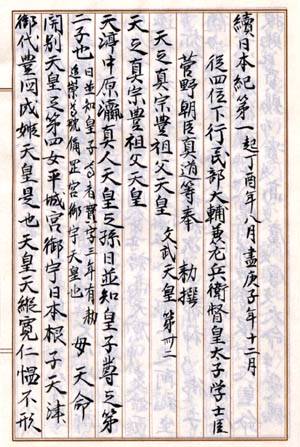 續日本紀第一 起丁酉年八月盡庚子年十二月
從四位下行民部大輔兼左兵衛督皇太子学士臣
菅野朝臣真道等奉 勅撰
天之真宗豊祖父天皇 文武天皇 第卌二
天之真宗豊祖父天皇
天渟中原瀛真人天皇之孫日並知皇子尊之第
二子也 日並知皇子尊者寶字二年有勅 追崇尊号稱罡宮御宇天皇也 母天命
開別天皇之第四女平城宮御宇日本根子天津
御代豊国成姫天皇是也天皇天縦寛仁慍不形